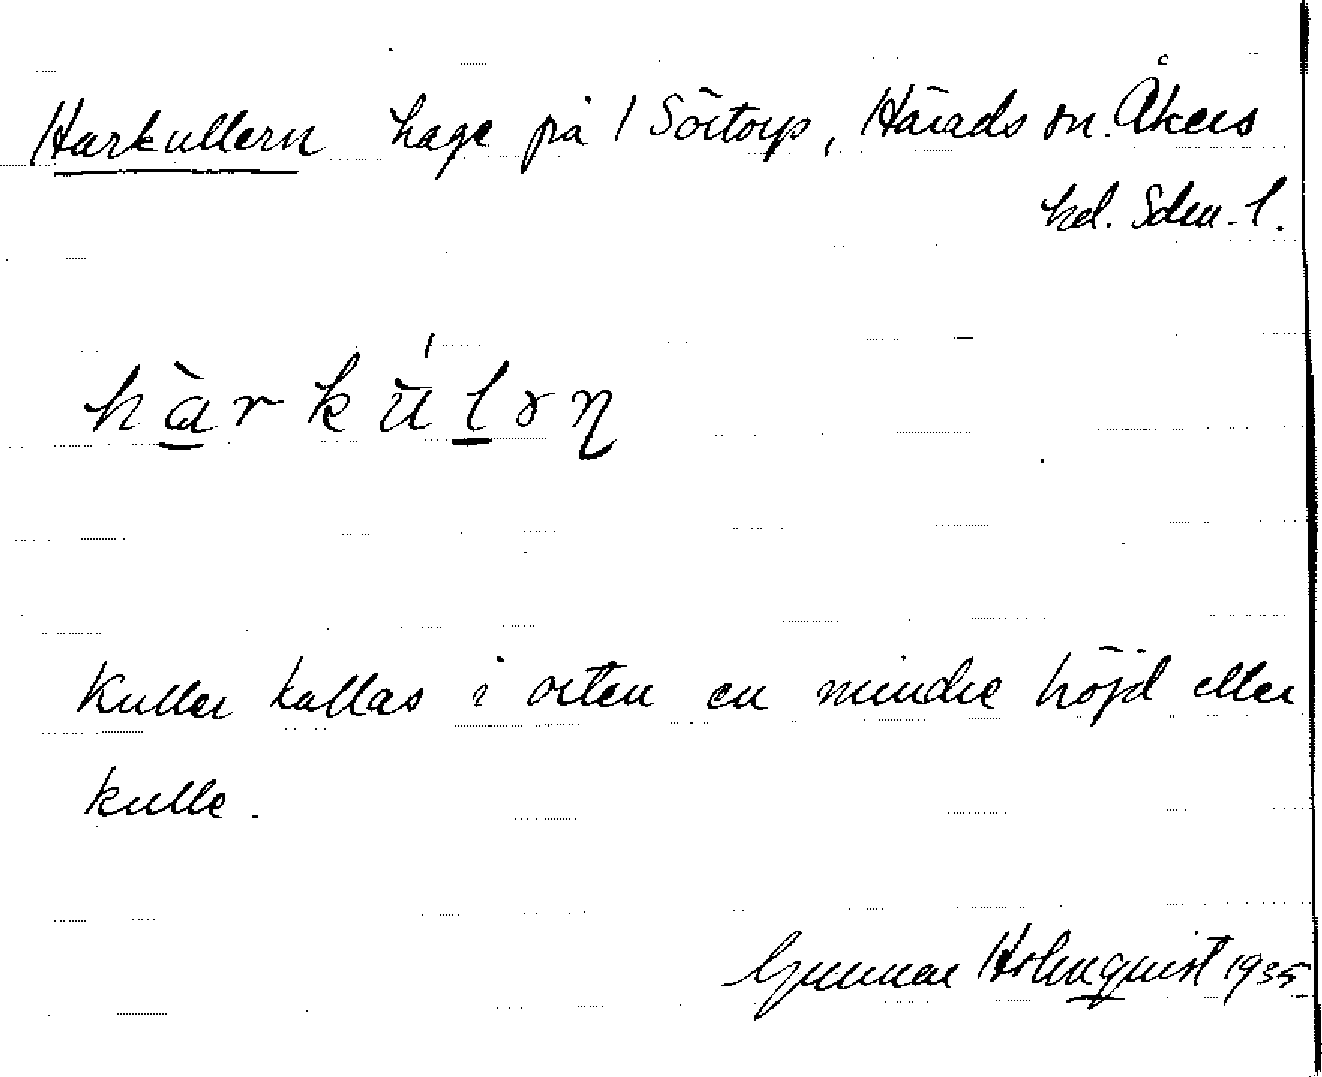 Harkullern hage på / Sörtorp, Härads sn. Åkers
hd. Sdm. l.
hàrkŭ́lərŋ
Kuller kallas i orten en mindre höjd eller
kulle.
Gunnar Holmquist 1935